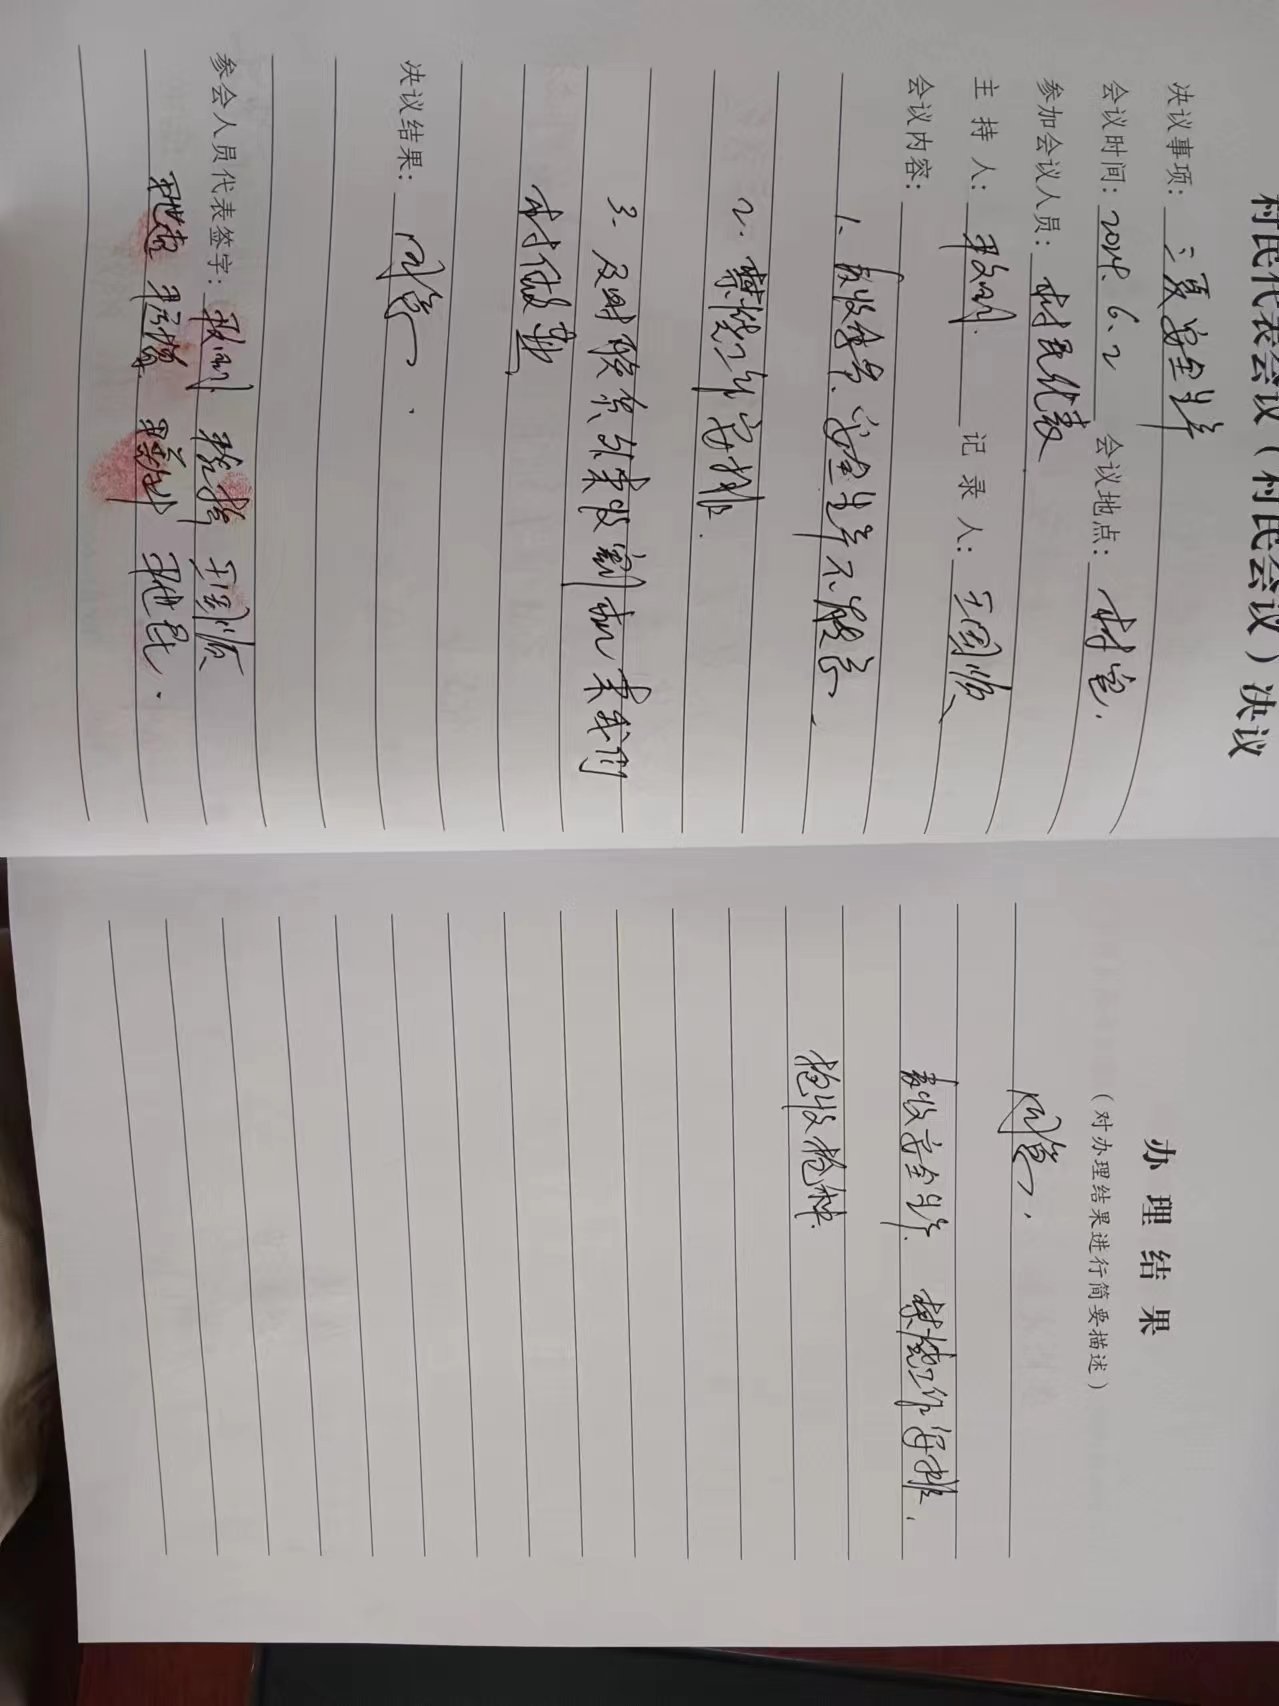 村民代表会议（村民会议）决议
决议事项：三夏安全生产
会议时间：2024.6.2 会议地点：村室.
参加会议人员：村民代表
主持人： 记录人：王国顺
会议内容：
1、麦收 安全生产不能忘
2、禁烧工作安排.
3、及时联系外来收割机来我们
村做
决议结果：同意.
参会人员代表签字： 王国顺
办理结果
（对办理结果进行简要描述）
同意.
麦收安全生产. 禁烧工作安排.
抢收抢种.